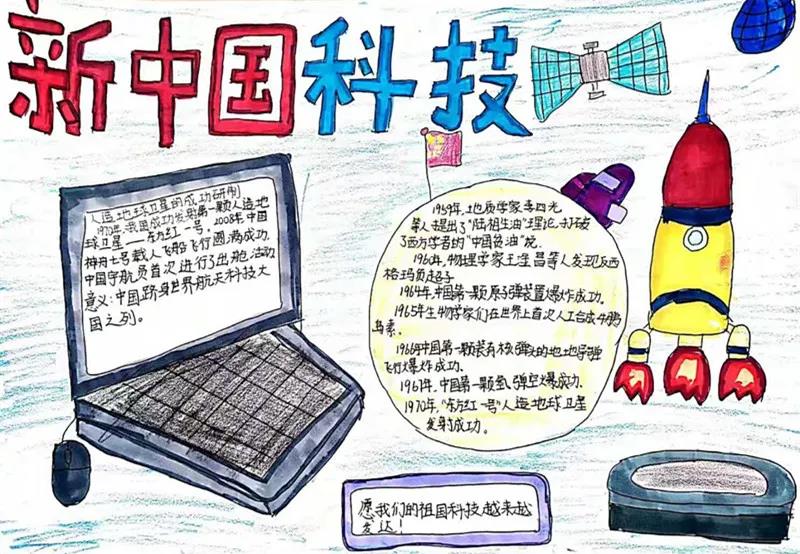 新中国科技
人造地球卫星的成功研制
1970年,我国成功发射第一颗人造地
球卫星——东方红一号。2008年,中国
神舟七号载人飞船飞行圆满成功,
中国宇航员首次进行了出舱活动
意义:中国跻身世界航天科技大
国之列。
1959年,地质学家李四光
等人提出了“陆相生油”理论,打破
了西方学者的“中国贫油”说。
1960年,物理学家王淦昌等人发现反西
格玛负超子
1964年,中国第一颗原子弹装置爆炸成功。
1965年生物学家们在世界上首次人工合成牛胰
岛素。
1966年中国第一颗装有核弹头的地地导弹
飞行爆炸成功.
1967年,中国第一颗氢弹空爆成功.
1970年,“东方红一号”人造地球卫星
发射成功。
愿我们的祖国科技越来越
发达!